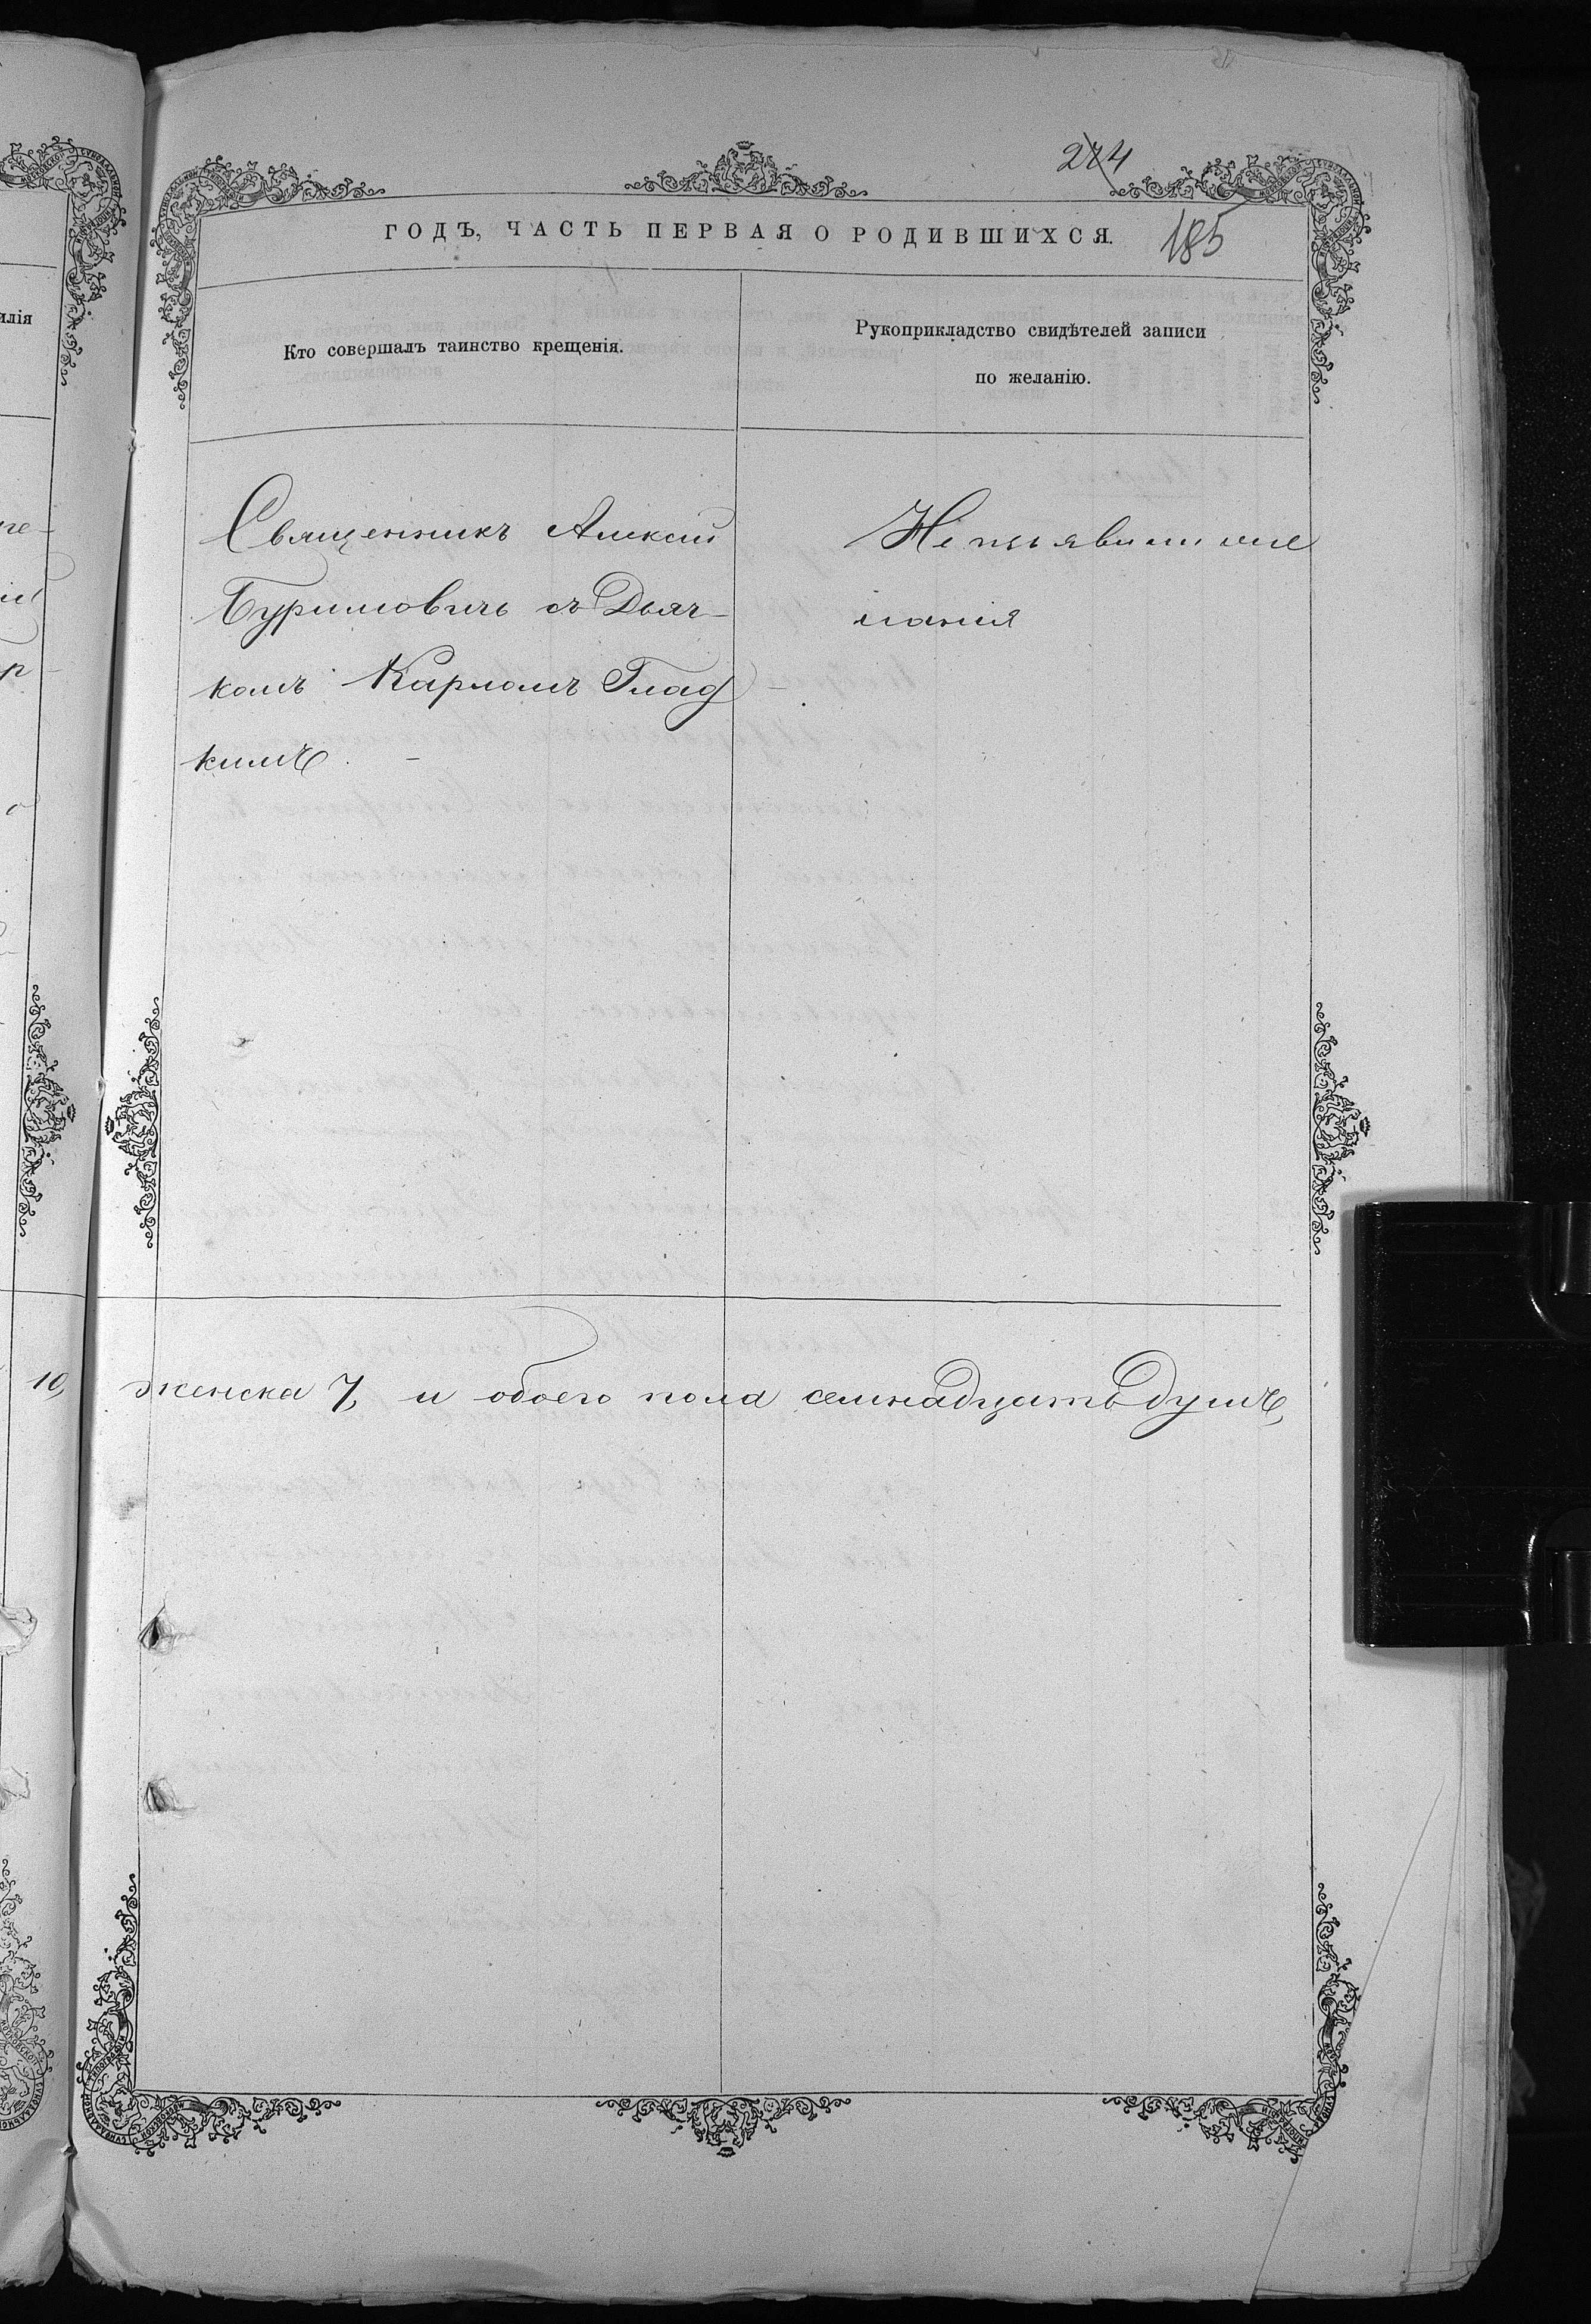 244
ГОДЪ, ЧАСТЬ ПЕРВАЯ О РОДИВШИХСЯ.
185
илія
Кто совершалъ таинство крещенія.
Рукоприкладство свидѣтелей записи
по желанію.
Священникъ Алексій
Буримовичъ съ Дьяч-
комъ Карпомъ Глад-
кимъ.
Неизъявили же
ланія
10, женска 7, и обоего пола семнадцать душъ,